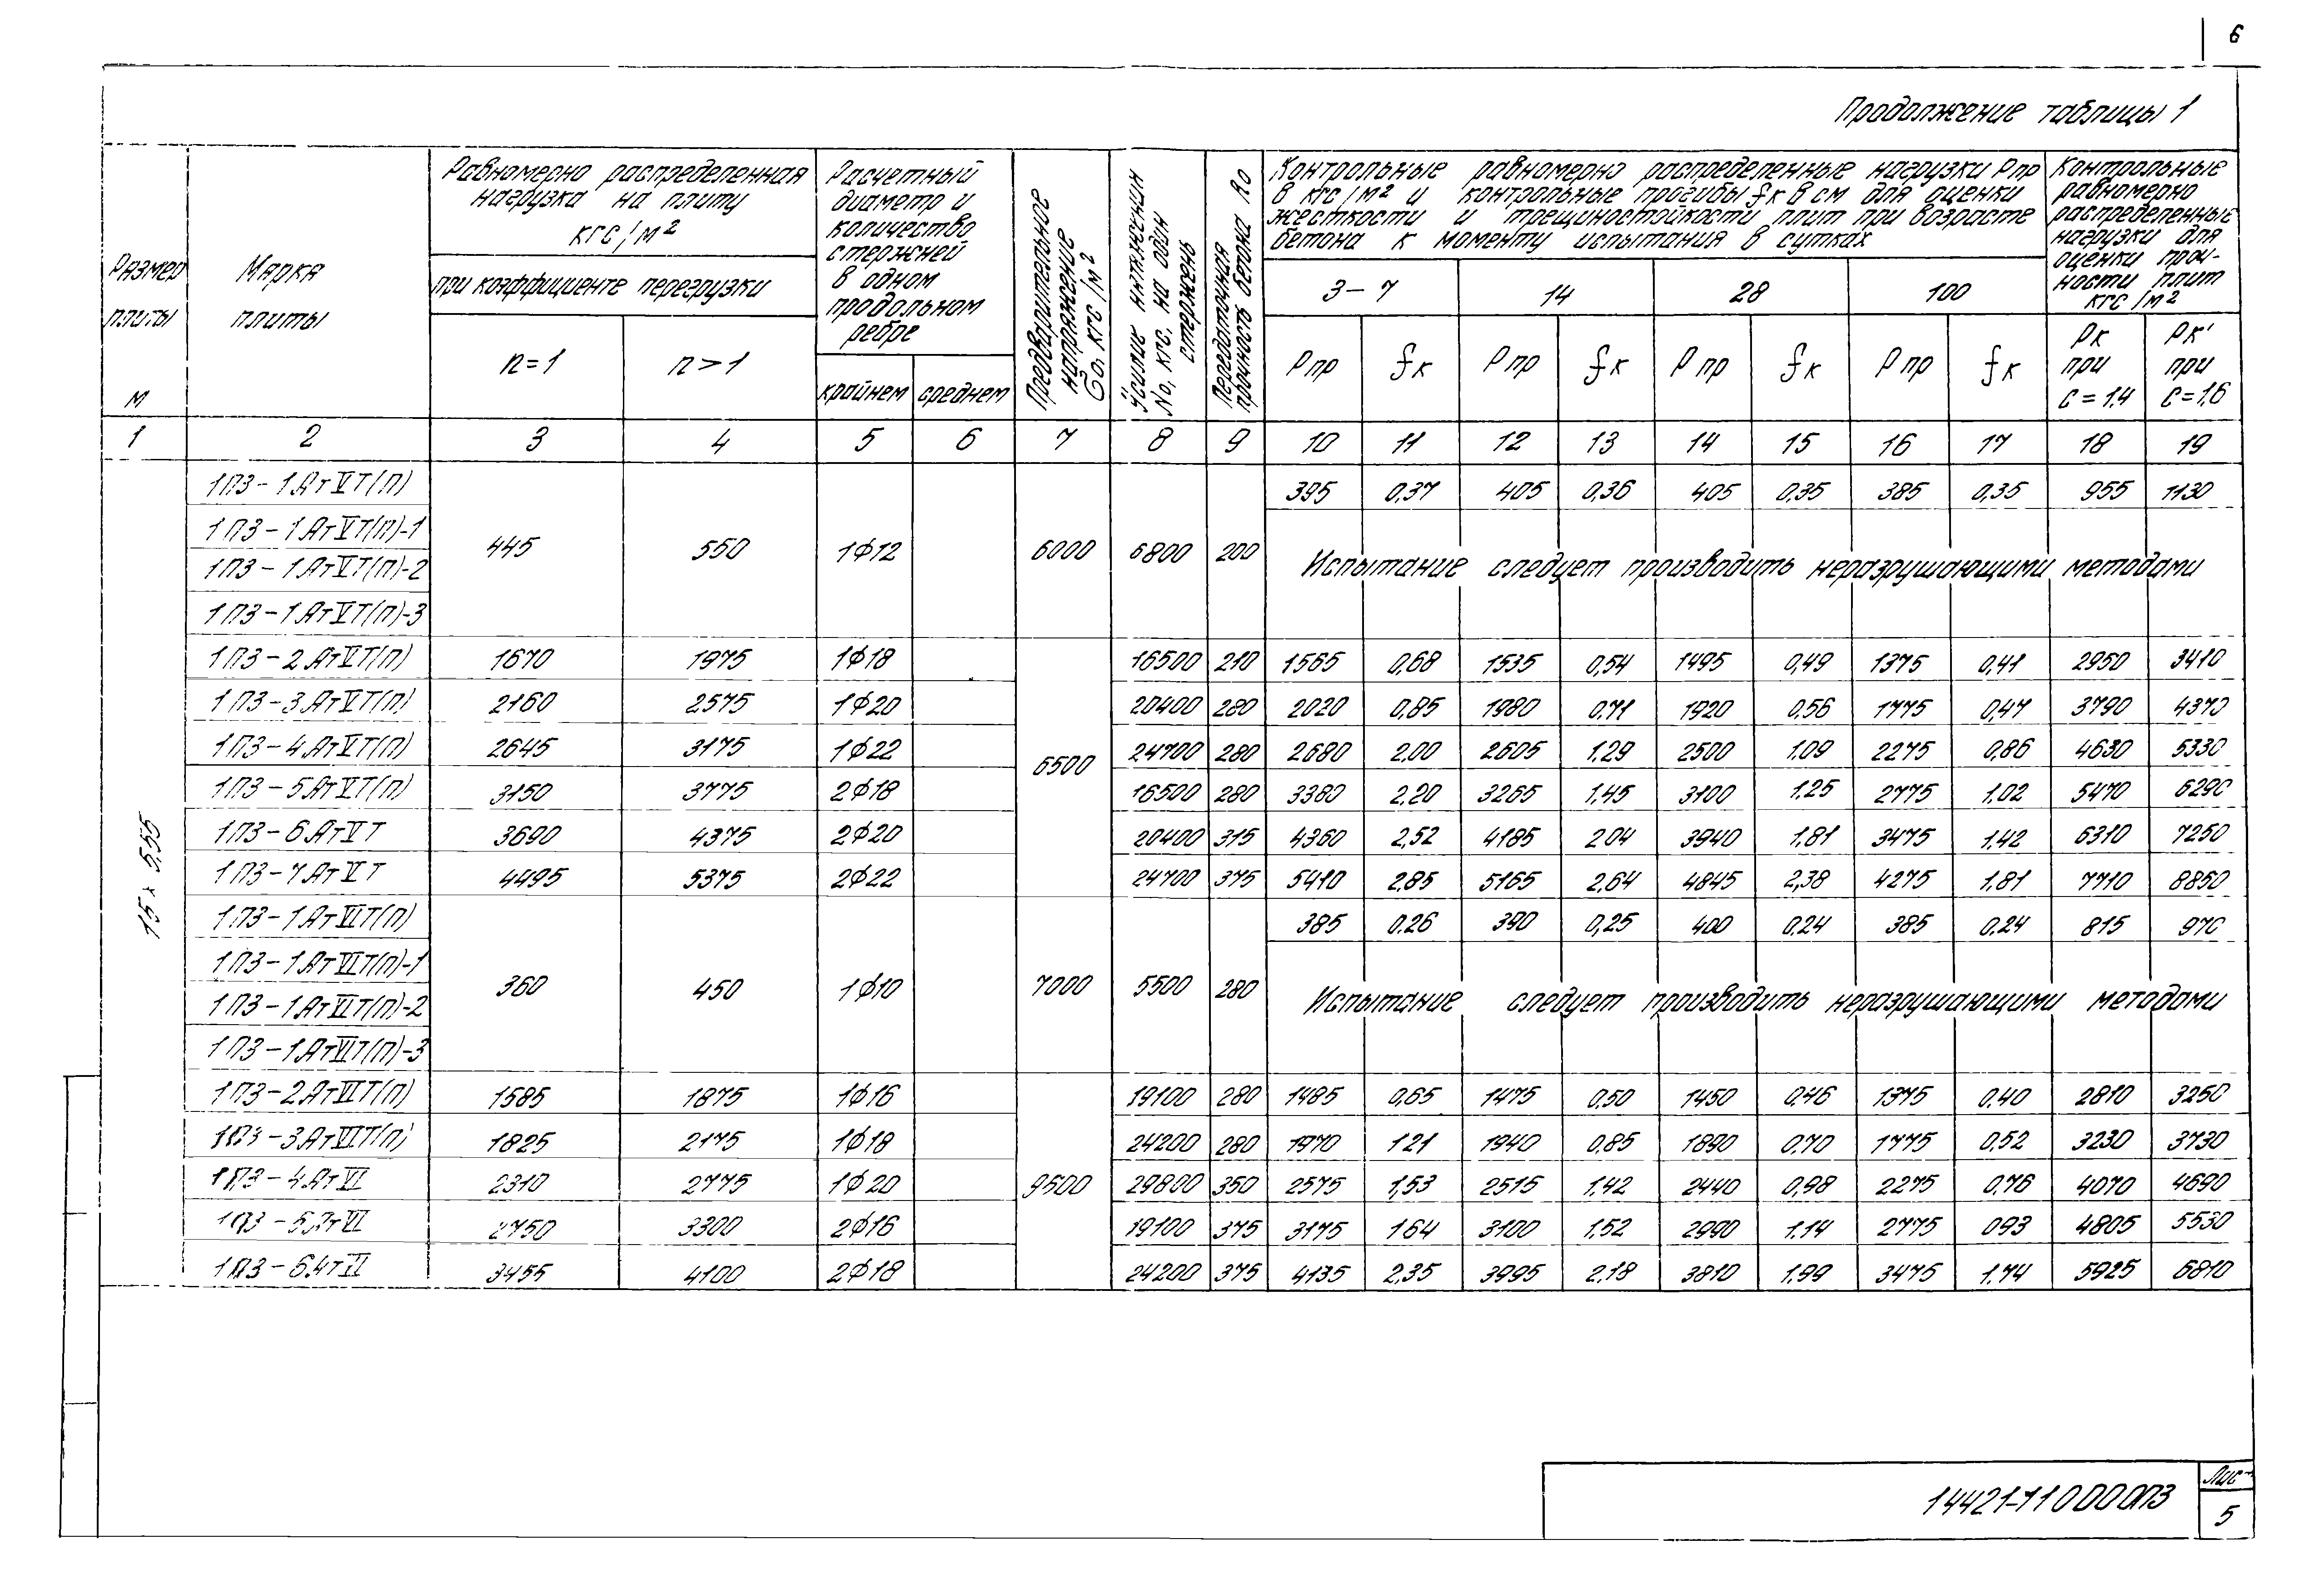 6
Продолжение таблицы 1
Размер плиты м
Марка плиты
Равномерно распределенная нагрузка на плиту кгс/м²
при коэффициенте перегрузки
n=1
n>1
Расчетный диаметр и количество стержней в одном продольном ребре
крайнем
среднем
Предварительное напряжение σо, кгс/м²
Усилие натяжения No, кгс, на один стержень
Передаточная прочность бетона Ro
Контрольные равномерно распределенные нагрузки Рпр
в кгс/м² и контрольные прогибы fк в см для оценки
жесткости и трещиностойкости плит при возрасте
бетона к моменту испытания в сутках
3–7 14 28 100
Рпр fк Рпр fк Рпр fк Рпр fк
Контрольные равномерно распределенные нагрузки для оценки проч-ности плит кгс/м²
Рк при С=1,4
Рк' при С=1,6
1 2 3 4 5 6 7 8 9 10 11 12 13 14 15 16 17 18 19
15 x 5,55
1ПЗ–1АтVТ(П) 395 0,37 405 0,36 405 0,35 385 0,35 955 1130
1ПЗ–1АтVТ(П)-1
445 550 1Ф12 6000 6800 200
1ПЗ–1АтVТ(П)-2
Испытание следует производить неразрушающими методами
1ПЗ–1АтVТ(П)-3
1ПЗ–2АтVТ(П) 1670 1975 1Ф18 16500 210 1565 0,68 1535 0,54 1495 0,49 1375 0,41 2950 3410
1ПЗ–3АтVТ(П) 2160 2575 1Ф20 20400 280 2020 0,85 1980 0,71 1920 0,56 1775 0,47 3790 4370
1ПЗ–4АтVТ(П) 2645 3175 1Ф22 24700 280 2680 2,00 2605 1,29 2500 1,09 2275 0,86 4630 5330
6500
1ПЗ–5АтVТ(П) 3150 3775 2Ф18 16500 280 3380 2,20 3265 1,45 3100 1,25 2775 1,02 5470 6290
1ПЗ–6АтVТ 3690 4375 2Ф20 20400 315 4360 2,52 4185 2,04 3940 1,81 3475 1,42 6310 7250
1ПЗ–7АтVТ 4495 5375 2Ф22 24700 375 5410 2,85 5165 2,64 4845 2,38 4275 1,81 7710 8850
1ПЗ–1АтVIТ(П) 385 0,26 390 0,25 400 0,24 385 0,24 815 970
1ПЗ–1АтVIТ(П)-1
360 450 1Ф10 7000 5500 280
1ПЗ–1АтVIТ(П)-2
Испытание следует производить неразрушающими методами
1ПЗ–1АтVIТ(П)-3
1ПЗ–2АтVIТ(П) 1585 1875 1Ф16 19100 280 1485 0,65 1475 0,50 1450 0,46 1375 0,40 2810 3250
1ПЗ–3АтVIТ(П) 1825 2175 1Ф18 24200 280 1970 1,21 1940 0,85 1890 0,70 1775 0,52 3230 3730
1ПЗ–4АтVI 2310 2775 1Ф20 9500 29800 350 2575 1,53 2515 1,42 2440 0,98 2275 0,76 4070 4690
1ПЗ–5АтVI 2750 3300 2Ф16 19100 375 3175 1,64 3100 1,52 2990 1,14 2775 0,93 4805 5530
1ПЗ–6АтVI 3455 4100 2Ф18 24200 375 4135 2,35 3995 2,18 3810 1,99 3475 1,74 5925 6810
14421-71 0000ПЗ
Лист
5